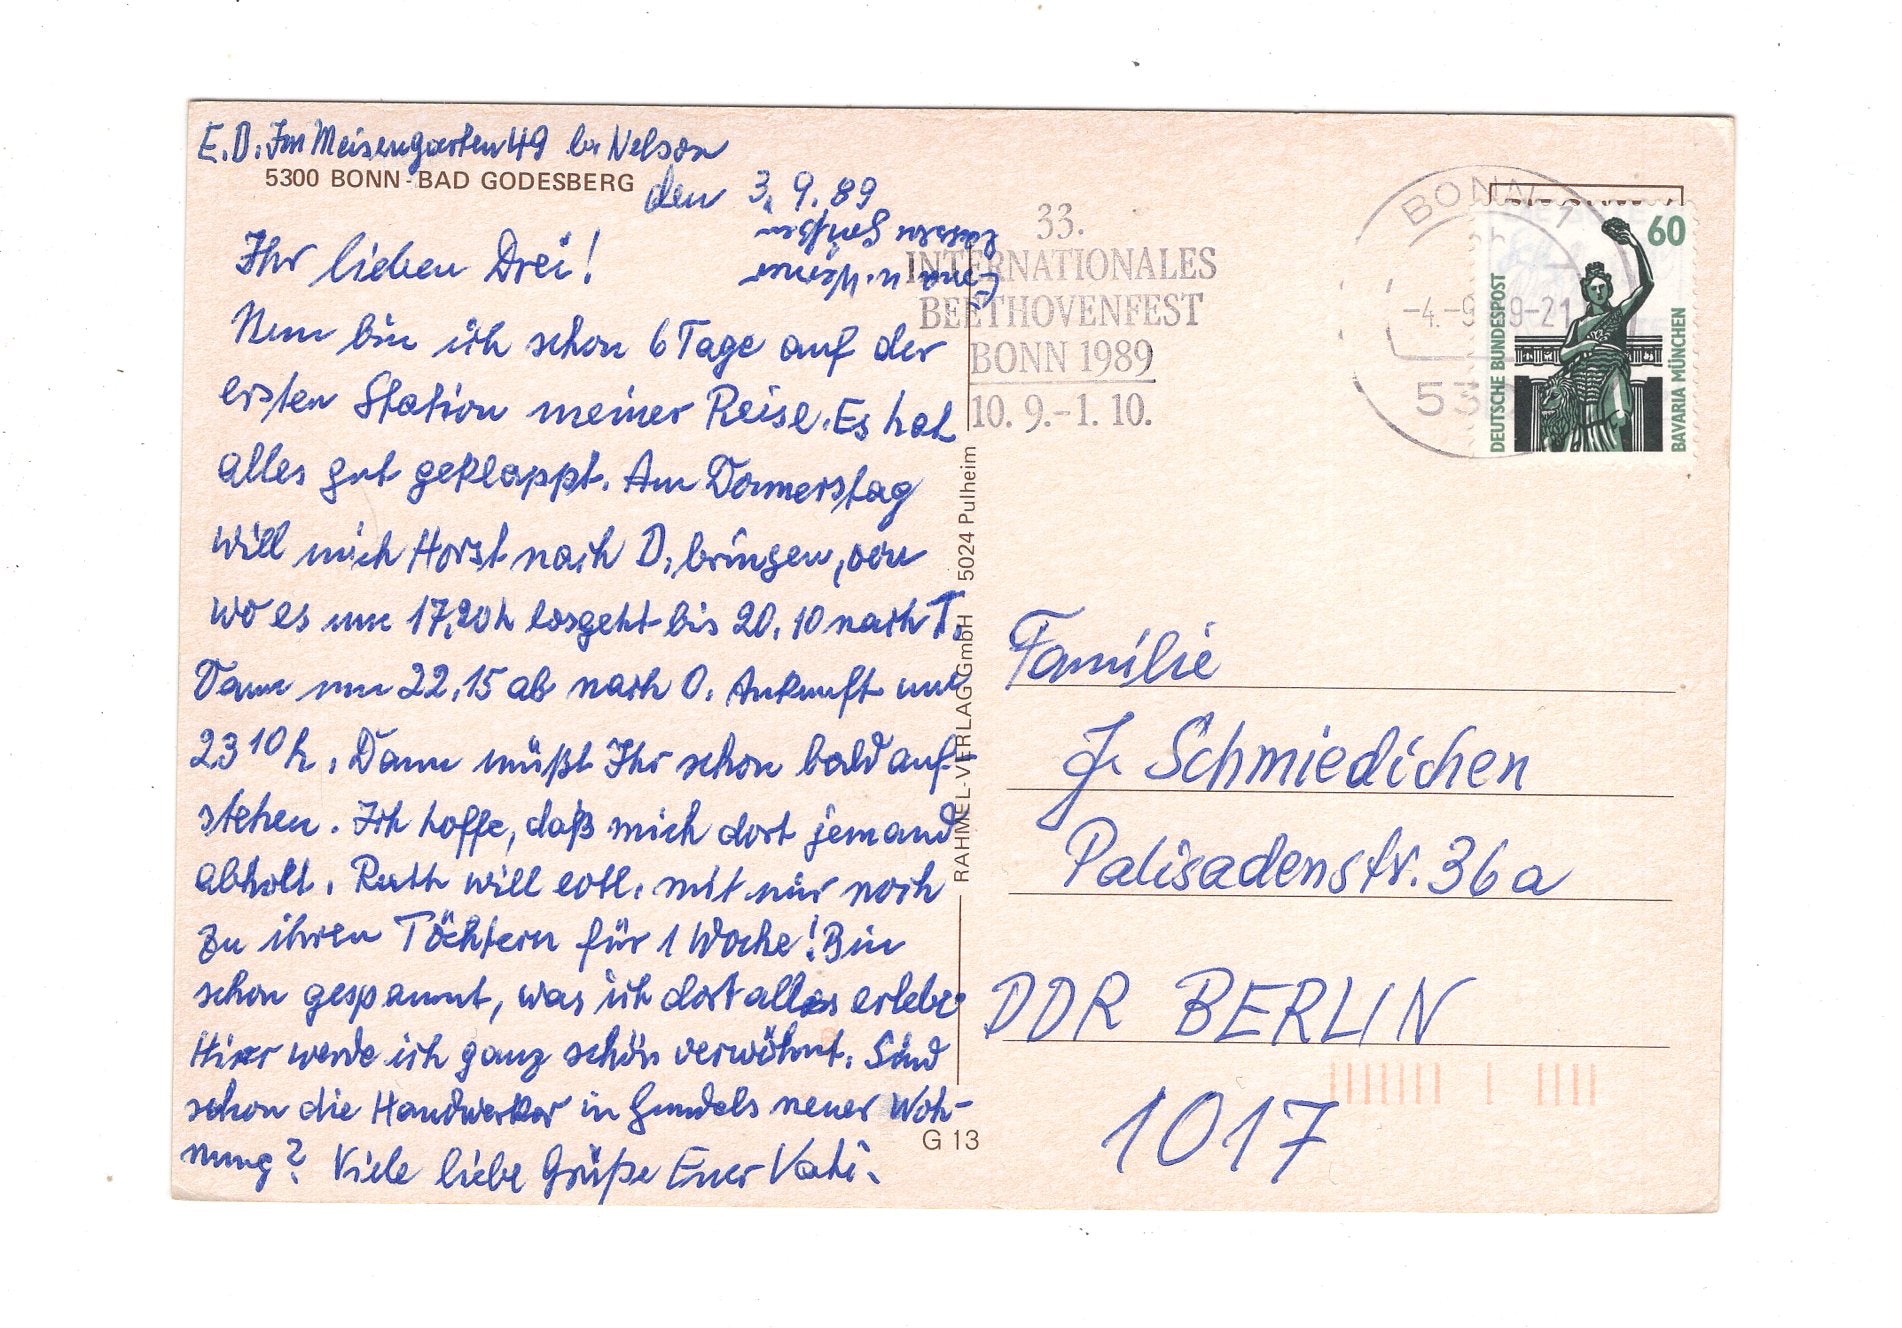 E. D. Im Meisengarten 49 bei Nelson
5300 BONN-BAD GODESBERG
den 3. 9. 89
Ihr lieben Drei!
Nun bin ich schon 6 Tage auf der
ersten Station meiner Reise. Es hat
alles gut geklappt. Am Donnerstag
will mich Horst nach D. bringen, von
wo es um 17,20h losgeht bis 20.10 nach T.
Dann um 22,15 ab nach O. Ankunft um
23 10 h. Dann müßt Ihr schon bald auf-
stehen. Ich hoffe, daß mich dort jemand
abholt. Ruth will evtl. mit mir noch
zu ihren Töchtern für 1 Woche! Bin
schon gespannt, was ich dort alles erlebe
Hier werde ich ganz schön verwöhnt. Sind
schon die Handwerker in Gundels neuer Woh-
nung? Viele liebe Grüße Euer Vati.
lassen grüßen
33.
INTERNATIONALES
BEETHOVENFEST
BONN 1989
10. 9.-1. 10.
BONN 1
-4.-9.89-21
53
60
DEUTSCHE BUNDESPOST
BAVARIA MÜNCHEN
RAHMEL-VERLAG GmbH 5024 Pulheim
G 13
Familie
J. Schmiedichen
Palisadenstr. 36a
DDR BERLIN
1017